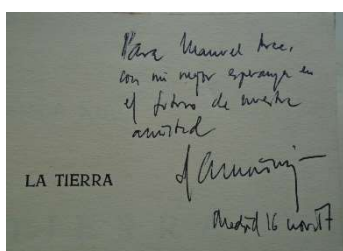 Para Manuel Arce,
con mi mejor esperanza en
el futuro de nuestra
amistad
LA TIERRA
Madrid 16